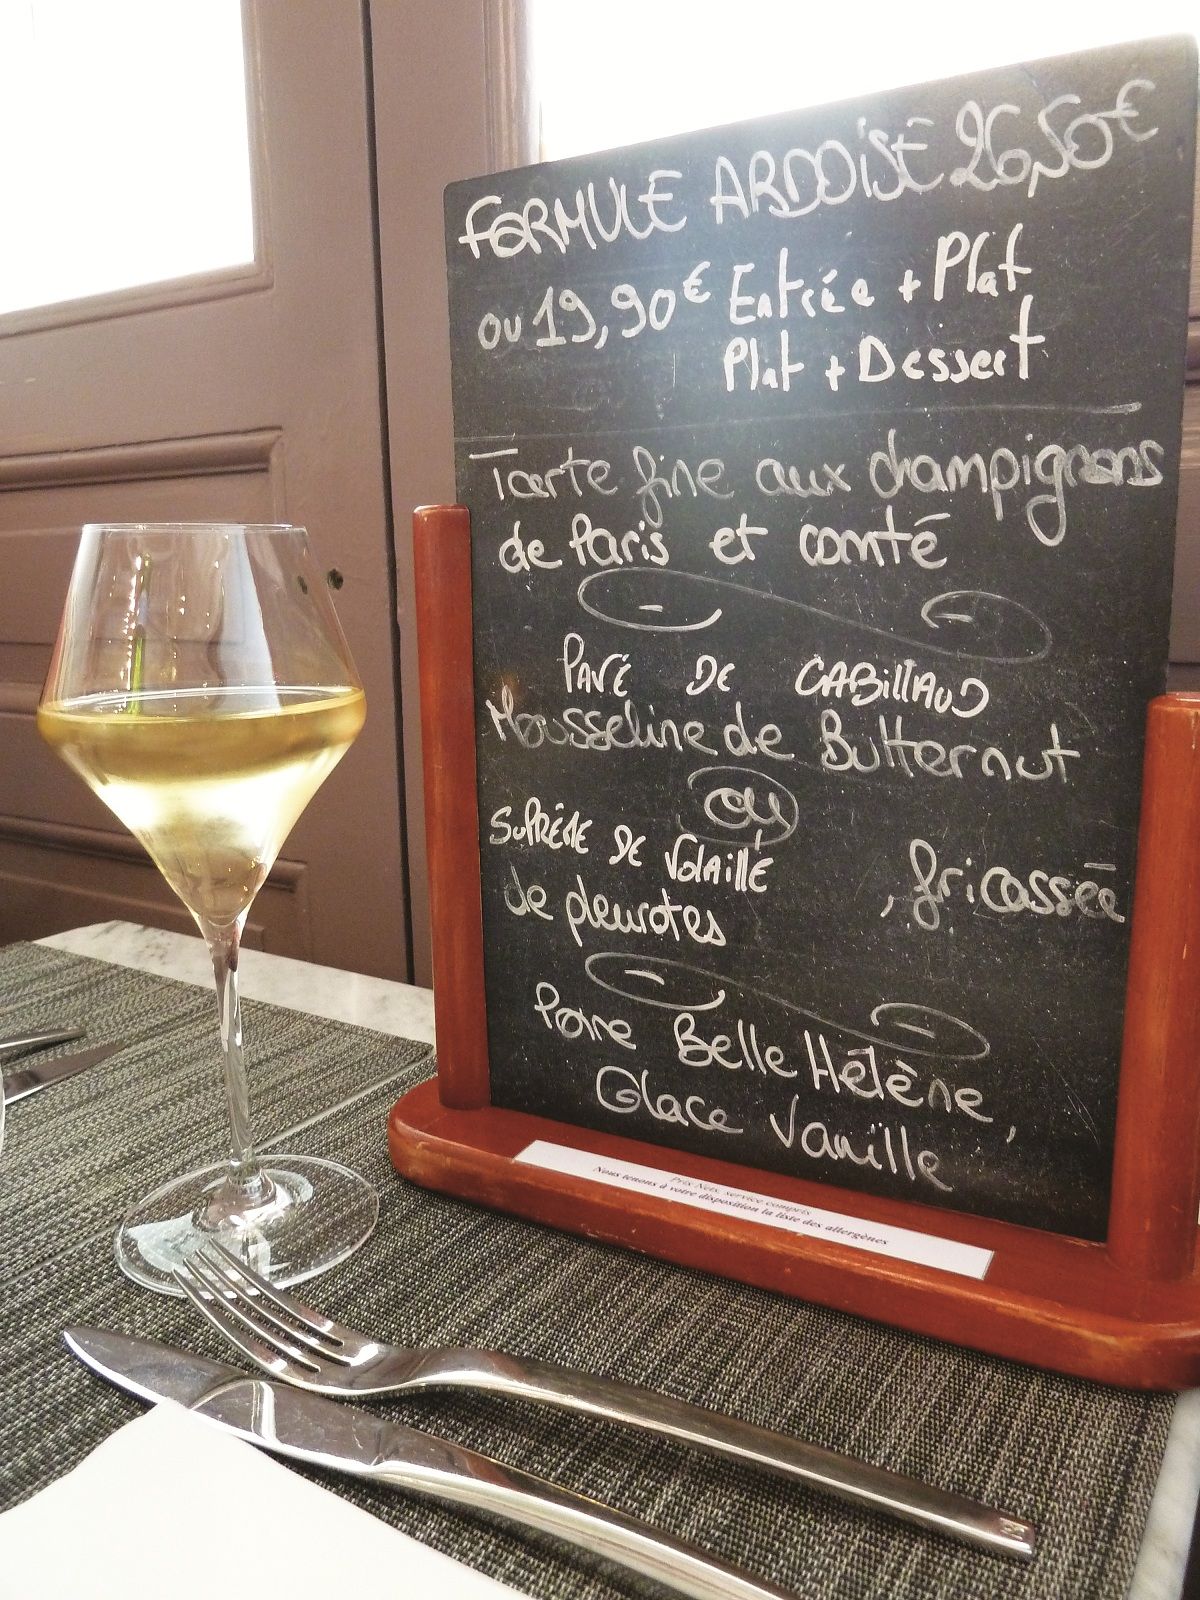 FORMULE ARDOISE 26,50€
ou 19,90€ Entrée + Plat
Plat + Dessert
Tarte fine aux champignons
de Paris et comté
PAVÉ DE CABILLAUD
Mousseline de Butternut
ou
SUPRÊME DE VOLAILLE, fricassée
de pleurotes
Poire Belle Hélène,
Glace Vanille
Prix Nets, service compris
Nous tenons à votre disposition la liste des allergènes